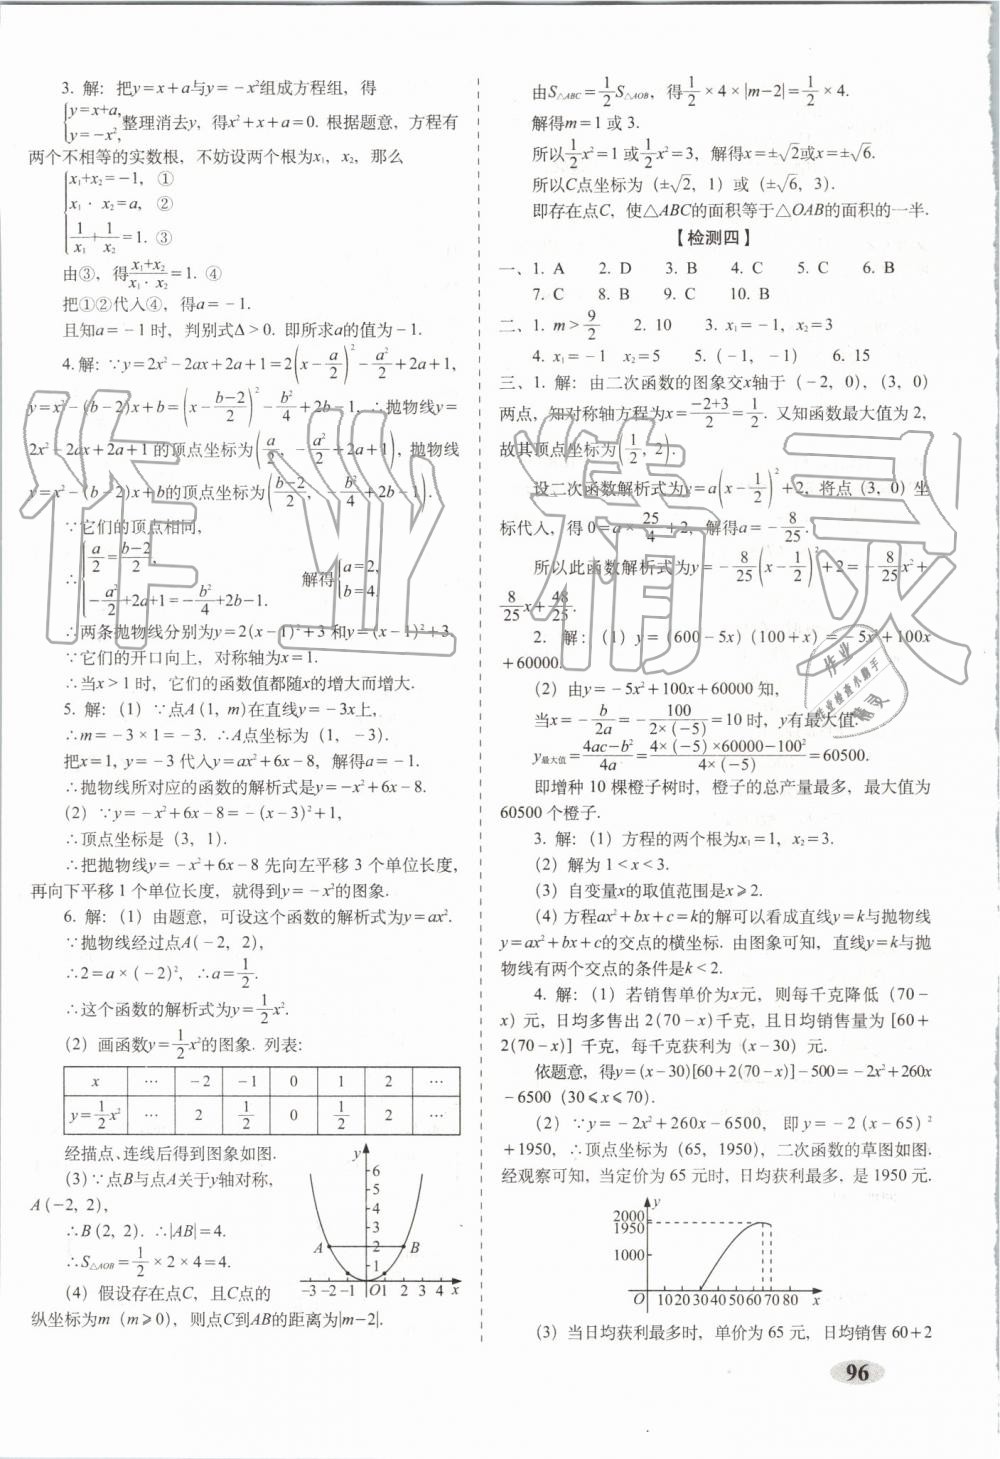 3. 解：把y=x+a与y=－x²组成方程组，得
{y=x+a, y=－x², 整理消去y，得x²+x+a=0. 根据题意，方程有
两个不相等的实数根，不妨设两个根为x₁，x₂，那么
{x₁+x₂=－1，①
x₁·x₂=a，②
1/x₁+1/x₂=1. ③
由③，得(x₁+x₂)/(x₁·x₂)=1. ④
把①②代入④，得a=－1.
且知a=－1时，判别式Δ>0. 即所求a的值为－1.
4.解：∵y=2x²－2ax+2a+1=2(x－a/2)²－a²/2+2a+1,
y=x²－(b－2)x+b=(x－(b－2)/2)²－b²/4+2b－1，∴抛物线y=
2x²－2ax+2a+1的顶点坐标为(a/2，－a²/2+2a+1)，抛物线
y=x²－(b－2)x+b的顶点坐标为((b－2)/2，－b²/4+2b－1).
∵它们的顶点相同，
∴{a/2=(b－2)/2, －a²/2+2a+1=－b²/4+2b－1. 解得{a=2, b=4.
∴两条抛物线分别为y=2(x－1)²+3和y=(x－1)²+3.
∵它们的开口向上，对称轴为x=1.
∴当x>1时，它们的函数值都随x的增大而增大.
5. 解：(1) ∵点A(1, m)在直线y=－3x上，
∴m=－3×1=－3. ∴A点坐标为（1，－3）.
把x=1, y=－3代入y=ax²+6x－8，解得a=－1.
∴抛物线所对应的函数的解析式是y=－x²+6x－8.
(2) ∵y=－x²+6x－8=－(x－3)²+1，
∴顶点坐标是（3，1）.
∴把抛物线y=－x²+6x－8先向左平移3个单位长度，
再向下平移1个单位长度，就得到y=－x²的图象.
6. 解：(1) 由题意，可设这个函数的解析式为y=ax².
∵抛物线经过点A(－2，2)，
∴2=a×(－2)²，∴a=1/2.
∴这个函数的解析式为y=1/2x².
(2) 画函数y=1/2x²的图象. 列表：
x … －2 －1 0 1 2 …
y=1/2x² … 2 1/2 0 1/2 2 …
经描点、连线后得到图象如图.
(3) ∵点B与点A关于y轴对称，
A(－2, 2)，
∴B(2, 2). ∴|AB|=4.
∴S△AOB=1/2×2×4=4.
(4) 假设存在点C，且C点的
纵坐标为m（m≥0），则点C到AB的距离为|m－2|.
y
6
5
4
3
A 2 B
1
－3－2－1 O1 2 3 4 x
由S△ABC=1/2S△AOB，得1/2×4×|m－2|=1/2×4.
解得m=1或3.
所以1/2x²=1或1/2x²=3，解得x=±√2或x=±√6.
所以C点坐标为（±√2，1）或（±√6，3）.
即存在点C，使△ABC的面积等于△OAB的面积的一半.
【检测四】
一、1. A 2. D 3. B 4. C 5. C 6. B
7. C 8. B 9. C 10. B
二、1. m>9/2 2. 10 3. x₁=－1，x₂=3
4. x₁=－1 x₂=5 5.（－1，－1） 6. 15
三、1. 解：由二次函数的图象交x轴于（－2，0），（3，0）
两点，知对称轴方程为x=(－2+3)/2=1/2. 又知函数最大值为2，
故其顶点坐标为(1/2，2).
设二次函数解析式为y=a(x－1/2)²+2，将点（3，0）坐
标代入，得0=a×25/4+2，解得a=－8/25.
所以此函数解析式为y=－8/25(x－1/2)²+2=－8/25x²+
8/25x+48/25.
2. 解：(1) y=(600－5x)(100+x)=－5x²+100x
+60000.
(2) 由y=－5x²+100x+60000知，
当x=－b/2a=－100/(2×(－5))=10时，y有最大值.
y最大值=(4ac－b²)/4a=(4×(－5)×60000－100²)/(4×(－5))=60500.
即增种10棵橙子树时，橙子的总产量最多，最大值为
60500个橙子.
3. 解：(1) 方程的两个根为x₁=1，x₂=3.
(2) 解为1<x<3.
(3) 自变量x的取值范围是x≥2.
(4) 方程ax²+bx+c=k的解可以看成直线y=k与抛物线
y=ax²+bx+c的交点的横坐标. 由图象可知，直线y=k与抛
物线有两个交点的条件是k<2.
4. 解：(1) 若销售单价为x元，则每千克降低（70－
x）元，日均多售出2(70－x)千克，且日均销售量为[60+
2(70－x)]千克，每千克获利为（x－30）元.
依题意，得y=(x－30)[60+2(70－x)]－500=－2x²+260x
－6500（30≤x≤70）.
(2) ∵y=－2x²+260x－6500，即y=－2(x－65)²
+1950，∴顶点坐标为（65，1950），二次函数的草图如图.
经观察可知，当定价为65元时，日均获利最多，是1950元.
y
2000
1950
1000
O 10 20 30 40 50 60 70 80 x
(3) 当日均获利最多时，单价为65元，日均销售60+2
96
作业精灵
作业
作业检查小助手
精灵